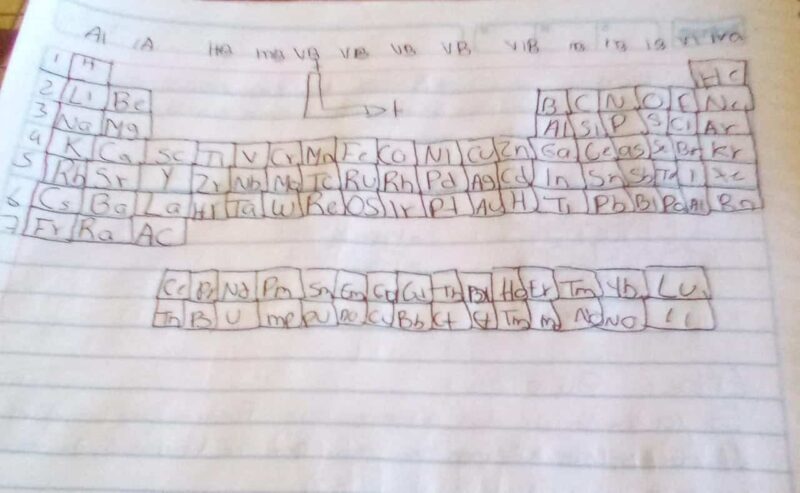 AI IA IIB IIIB VB VB VB VB VIB IB IB IB
1 H He
2 Li Be B C N O F Ne
3 Na Mg Al Si P S Cl Ar
4 K Ca Sc Ti V Cr Mn Fe Co Ni Cu Zn Ga Ge as Se Br Kr
5 Rb Sr Y Zr Nb Mo Tc Ru Rh Pd Ag Cd In Sn Sb Te I Xe
6 Cs Ba La Hf Ta W Re OS Ir Pt Au H Ti Pb Bi Po At Ra
7 Fr Ra AC
Ce Pr Nd Pm Sm Gd Tb Ho Er Tm Yb Lu
Th B U mp PU Cu Bb Cf Tm m No NO